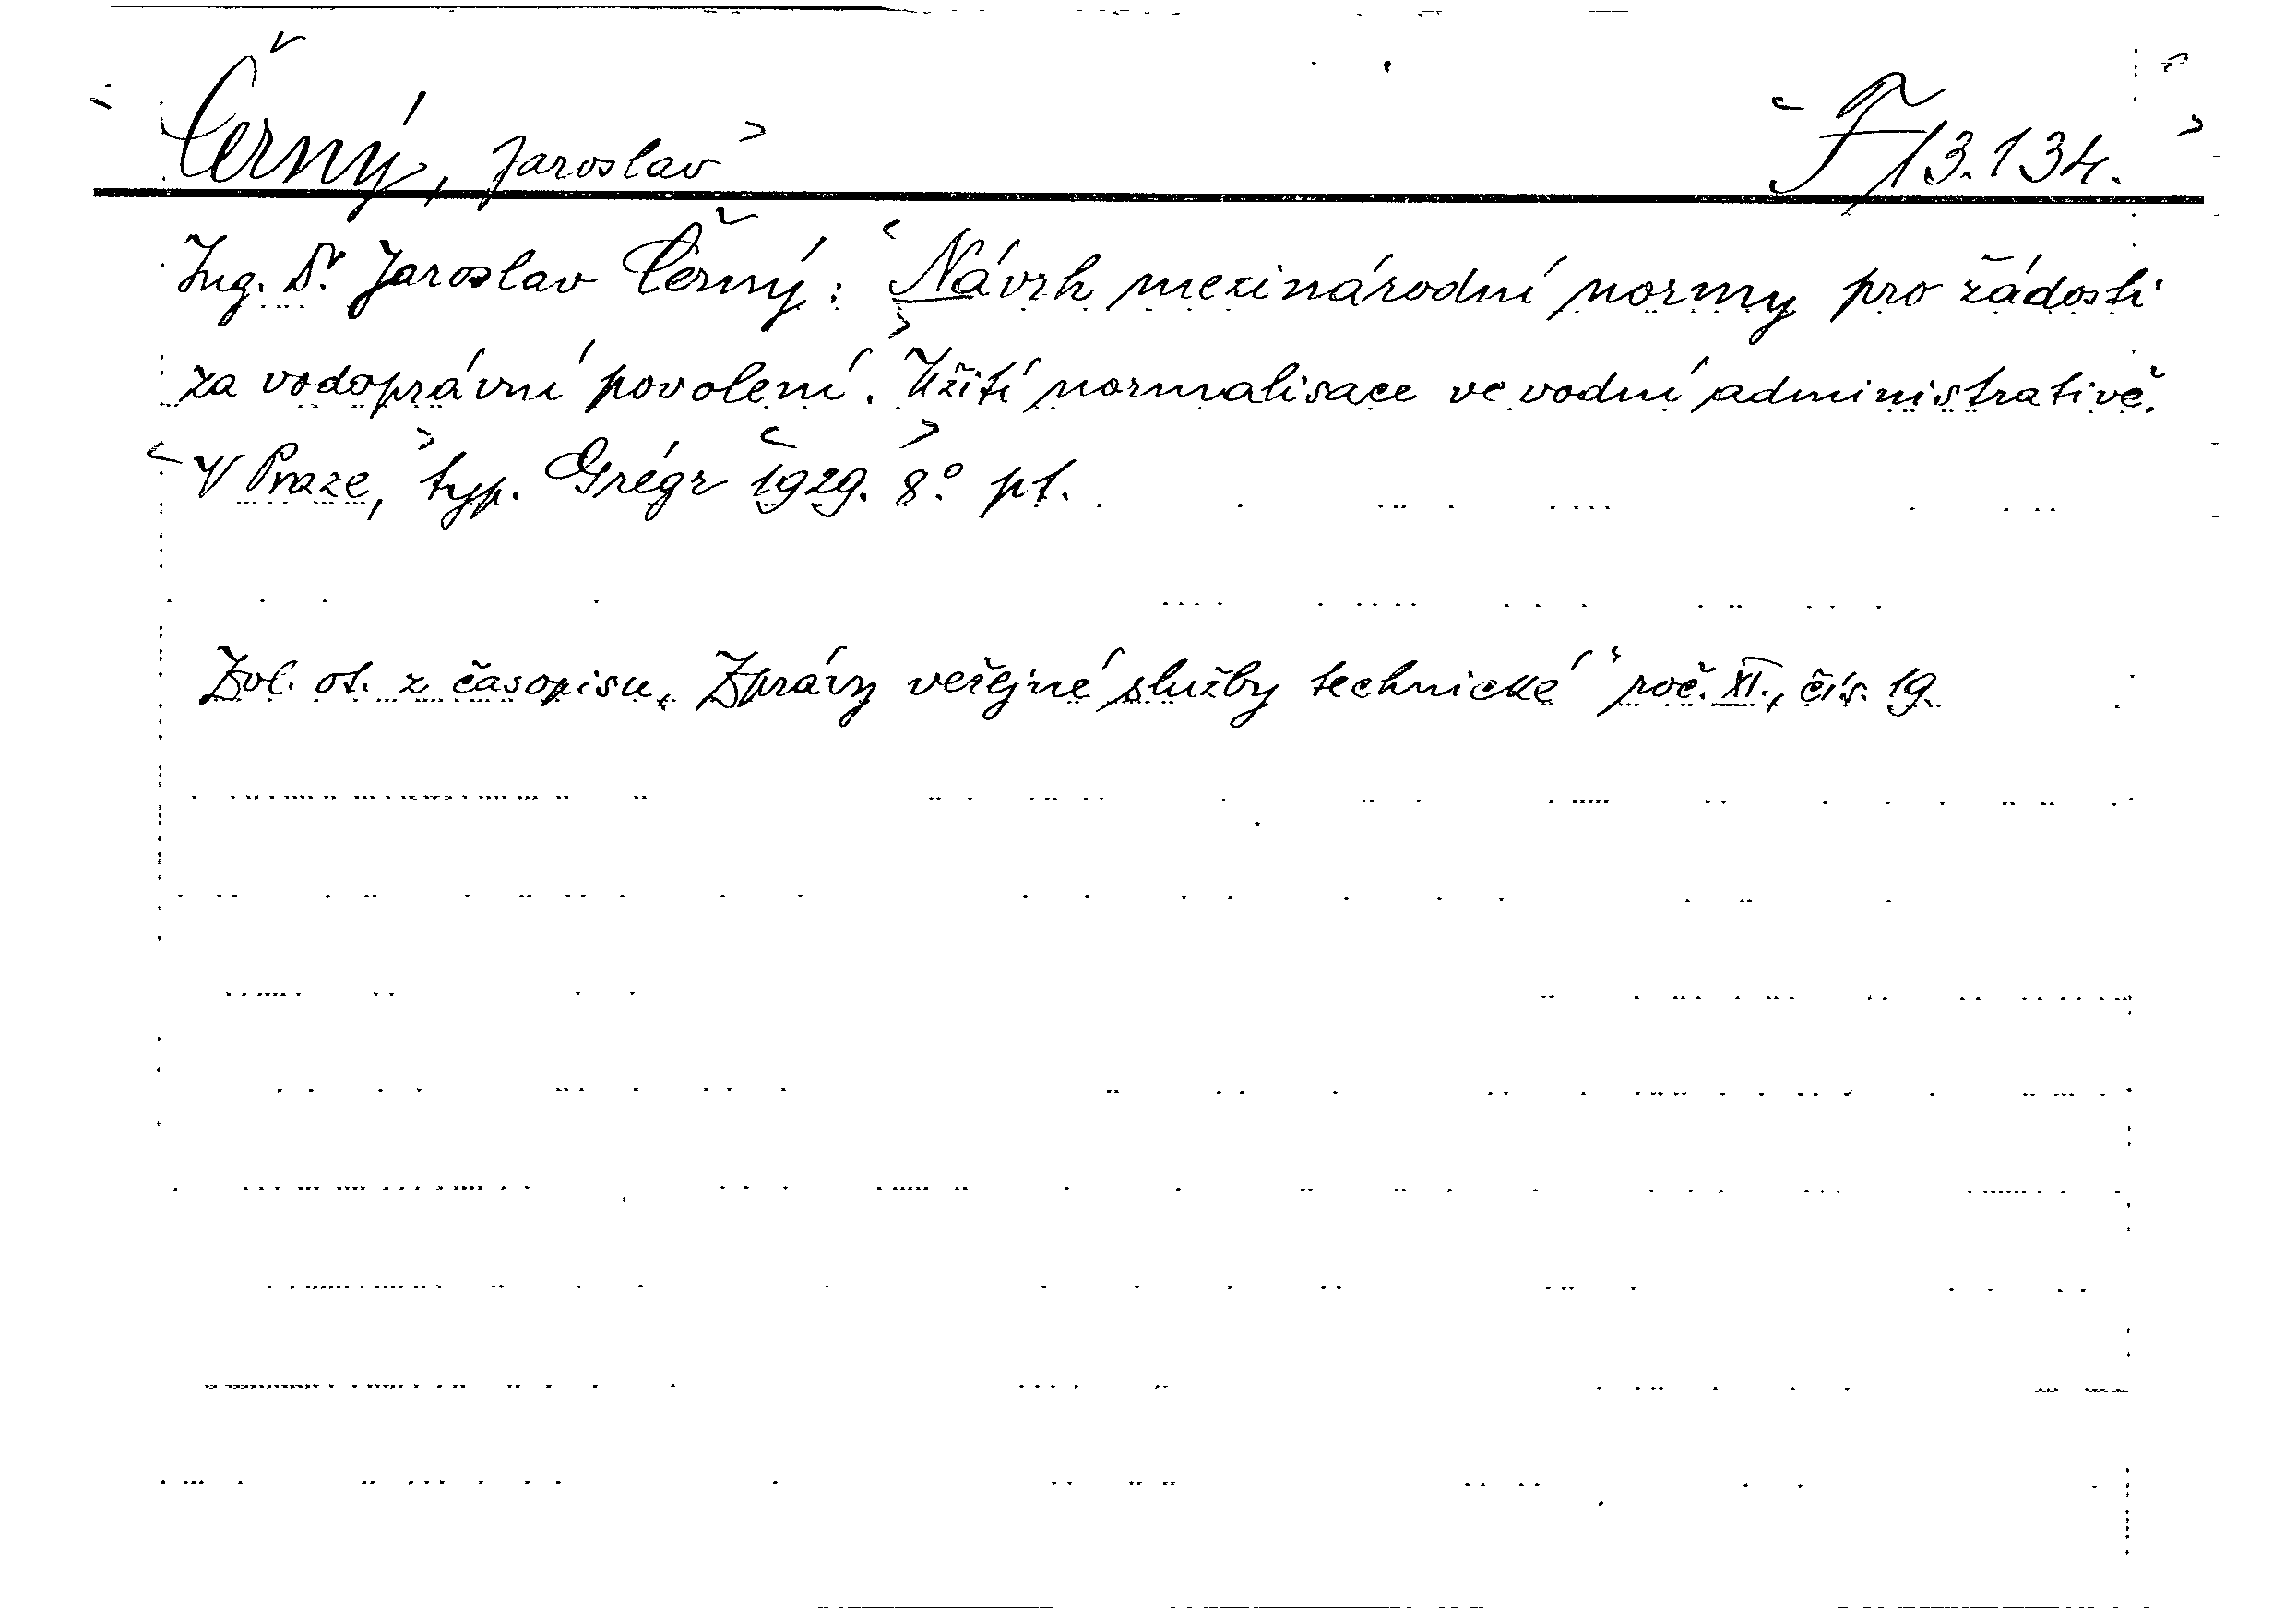 Černý, Jaroslav F 13.134.
Ing. Dr. Jaroslav Černý: Návrh mezinárodní normy pro žádosti
za vodoprávní povolení. Užití normalisace ve vodní administrativě.
V Praze, typ. Grégr 1929. 8° pt.
Zvl. ot. z časopisu „Zprávy veřejné služby technické“ roč. XI., čís. 19.